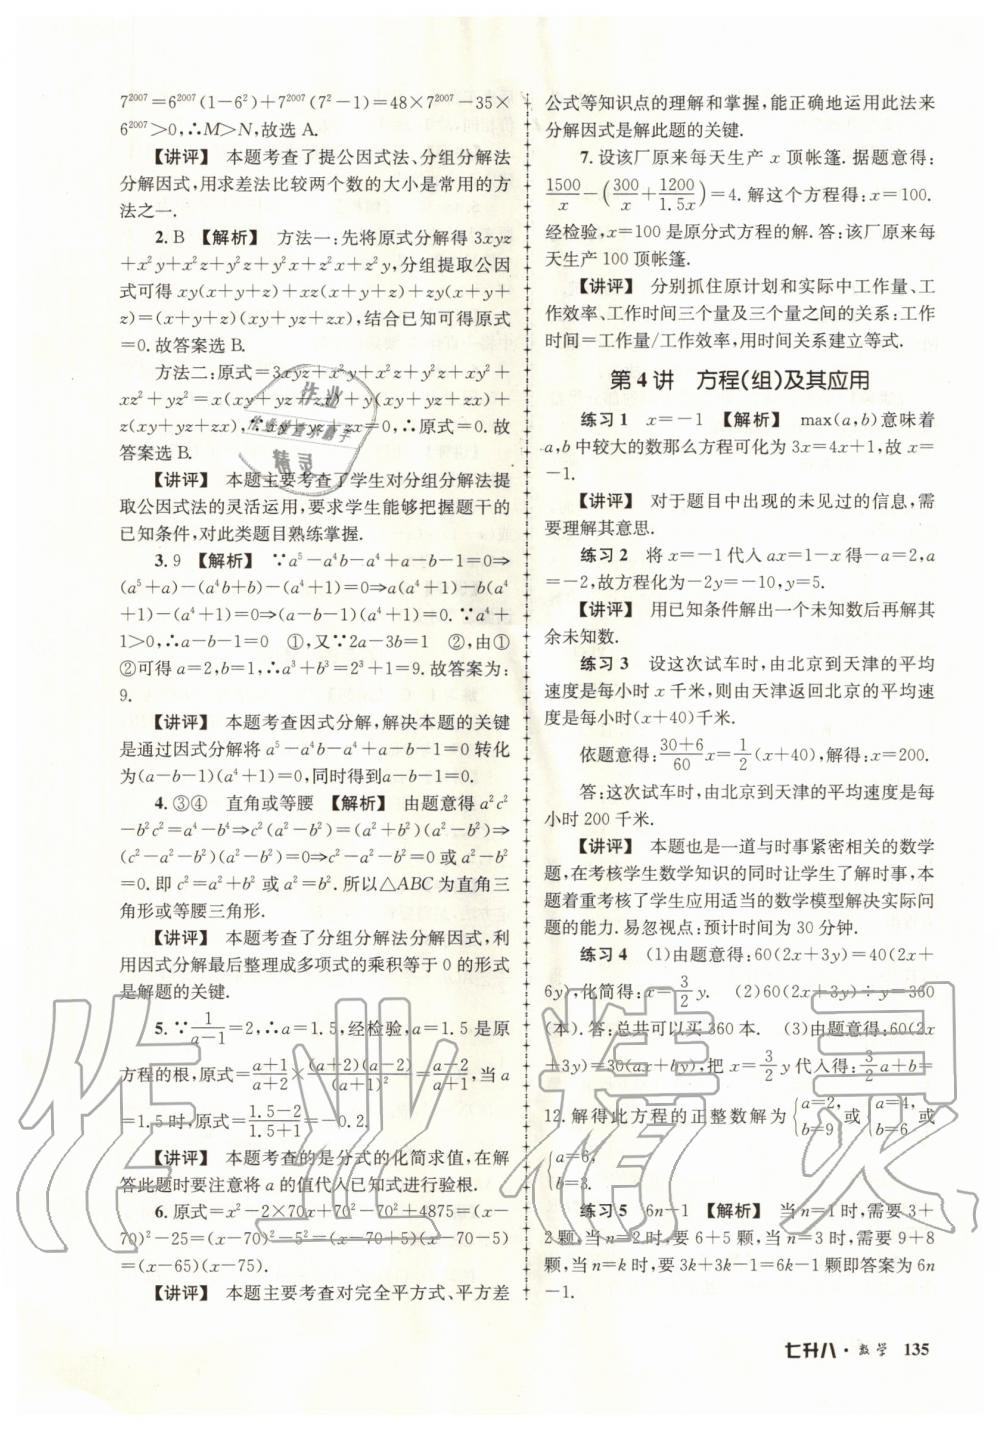 7²⁰⁰⁷=6²⁰⁰⁷(1-6²)+7²⁰⁰⁷(7²-1)=48×7²⁰⁰⁷-35×
6²⁰⁰⁷>0,∴M>N,故选 A.
【讲评】 本题考查了提公因式法、分组分解法
分解因式,用求差法比较两个数的大小是常用的方
法之一.
2. B 【解析】 方法一:先将原式分解得 3xyz
+x²y+x²z+y²z+y²x+z²x+z²y,分组提取公因
式可得 xy(x+y+z)+xz(x+y+z)+zy(x+y+
z)=(x+y+z)(xy+yz+xz),结合已知可得原式
=0.故答案选 B.
方法二:原式=3xyz+x²y+x²z+y²z+xy²+
xz²+yz²=x(xy+yz+xz)+y(xy+yz+xz)+
z(xy+yz+xz),∵xy+yz+xz=0,∴原式=0.故
答案选 B.
【讲评】 本题主要考查了学生对分组分解法提
取公因式法的灵活运用,要求学生能够把握题干的
已知条件,对此类题目熟练掌握.
3. 9 【解析】 ∵a⁵-a⁴b-a⁴+a-b-1=0⇒
(a⁵+a)-(a⁴b+b)-(a⁴+1)=0⇒a(a⁴+1)-b(a⁴
+1)-(a⁴+1)=0⇒(a-b-1)(a⁴+1)=0.∵a⁴+
1>0,∴a-b-1=0 ①,又∵2a-3b=1 ②,由①
②可得 a=2,b=1,∴a³+b³=2³+1=9.故答案为:
9.
【讲评】 本题考查因式分解,解决本题的关键
是通过因式分解将 a⁵-a⁴b-a⁴+a-b-1=0 转化
为(a-b-1)(a⁴+1)=0,同时得到a-b-1=0.
4. ③④ 直角或等腰 【解析】 由题意得 a²c²
-b²c²=a⁴-b⁴⇒c²(a²-b²)=(a²+b²)(a²-b²)⇒
(c²-a²-b²)(a²-b²)=0⇒c²-a²-b²=0 或a²-b²
=0.即 c²=a²+b² 或 a=b.所以△ABC 为直角三
角形或等腰三角形.
【讲评】 本题考查了分组分解法分解因式,利
用因式分解最后整理成多项式的乘积等于 0 的形式
是解题的关键.
5. ∵1/(a-1)=2,∴a=1.5,经检验,a=1.5 是原
方程的根,原式=(a+1)/(a+2)×(a+2)(a-2)/(a+1)²=(a-2)/(a+1),当 a
=1.5时,原式=(1.5-2)/(1.5+1)=-0.2.
【讲评】 本题考查的是分式的化简求值,在解
答此题时要注意将 a 的值代入已知式进行验根.
6. 原式=x²-2×70x+70²-70²+4875=(x-
70)²-25=(x-70)²-5²=(x-70+5)(x-70-5)
=(x-65)(x-75).
【讲评】 本题主要考查对完全平方式、平方差
公式等知识点的理解和掌握,能正确地运用此法来
分解因式是解此题的关键.
7. 设该厂原来每天生产 x 顶帐篷.据题意得:
1500/x-(300/x+1200/1.5x)=4.解这个方程得:x=100.
经检验,x=100 是原分式方程的解.答:该厂原来每
天生产 100 顶帐篷.
【讲评】 分别抓住原计划和实际中工作量、工
作效率、工作时间三个量及三个量之间的关系:工作
时间=工作量/工作效率,用时间关系建立等式.
第 4 讲 方程(组)及其应用
练习 1 x=-1 【解析】 max(a,b)意味着
a,b 中较大的数那么方程可化为 3x=4x+1,故 x=
-1.
【讲评】 对于题目中出现的未见过的信息,需
要理解其意思.
练习 2 将 x=-1代入 ax=1-x 得-a=2,a
=-2,故方程化为-2y=-10,y=5.
【讲评】 用已知条件解出一个未知数后再解其
余未知数.
练习 3 设这次试车时,由北京到天津的平均
速度是每小时 x 千米,则由天津返回北京的平均速
度是每小时(x+40)千米.
依题意得:(30+6)/60 x=1/2(x+40),解得:x=200.
答:这次试车时,由北京到天津的平均速度是每
小时 200 千米.
【讲评】 本题也是一道与时事紧密相关的数学
题,在考核学生数学知识的同时让学生了解时事,本
题着重考核了学生应用适当的数学模型解决实际问
题的能力.易忽视点:预计时间为 30 分钟.
练习 4 (1)由题意得:60(2x+3y)=40(2x+
6y),化简得:x=3/2 y. (2)60(2x+3y)÷y=360
(本).答:总共可以买 360 本. (3)由题意得:60(2x
+3y)=30(ax+by),把 x=3/2 y代入得:3/2 a+b=
12.解得此方程的正整数解为{a=2, b=9, 或{a=4, b=6 或
{a=6, b=3.
练习 5 6n-1 【解析】 当 n=1 时,需要 3+
2颗,当 n=2 时,要 6+5 颗,当 n=3 时,需要 9+8
颗,当 n=k 时,要 3k+3k-1=6k-1 颗即答案为 6n
-1.
七升八·数学 135
作业
作业检查小助手
精灵
作业精灵